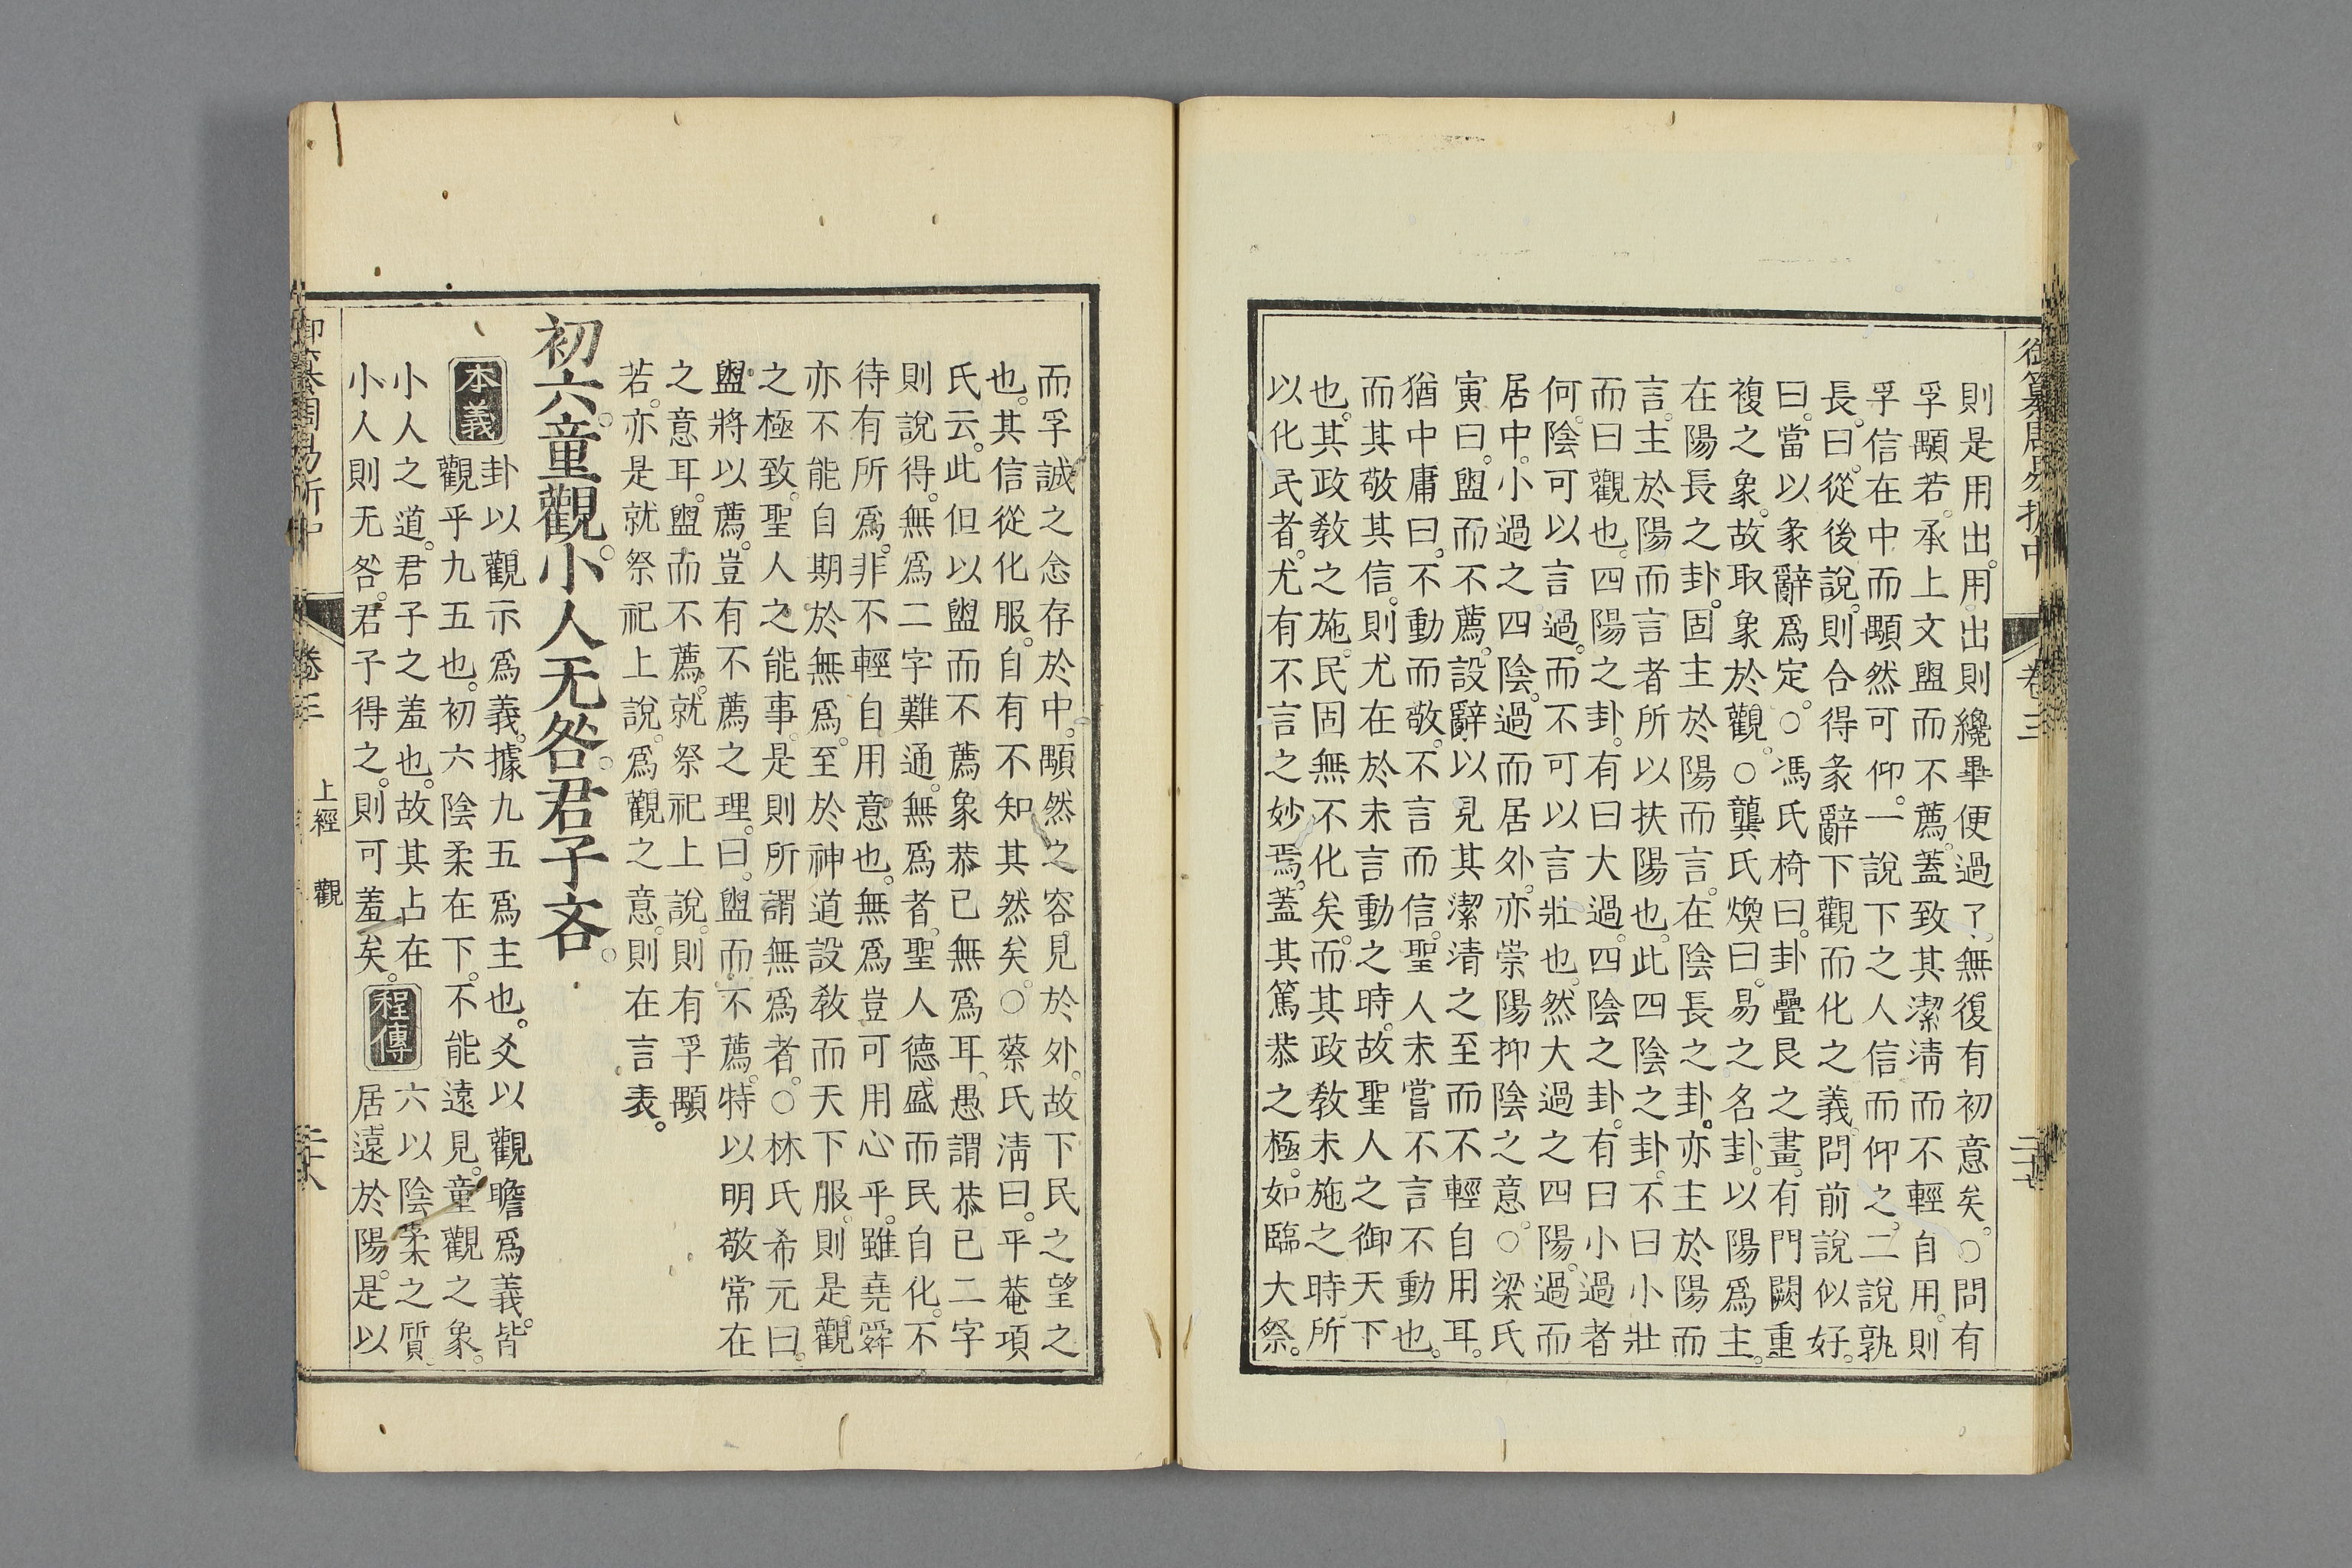 御纂周易折中
卷三
二十七
則是用出。用出則纔畢便過了。無復有初意矣。○問有
孚顒若。承上文盥而不薦。蓋致其潔淸而不輕自用。則
孚信在中而顒然可仰。一說下之人信而仰之。二說孰
長。曰。從後說。則合得彖辭下觀而化之義。問前說似好。
曰。當以彖辭爲定。○馮氏椅曰。卦疊艮之畫。有門闕重
複之象。故取象於觀。○龔氏煥曰。易之名卦。以陽爲主。
在陽長之卦。固主於陽而言。在陰長之卦。亦主於陽而
言。主於陽而言者所以扶陽也。此四陰之卦。不曰小壯
而曰觀也。四陽之卦。有曰大過。四陰之卦。有曰小過者
何。陰可以言過。而不可以言壯也。然大過之四陽。過而
居中。小過之四陰。過而居外。亦崇陽抑陰之意。○梁氏
寅曰。盥而不薦。設辭以見其潔清之至而不輕自用耳。
猶中庸曰。不動而敬。不言而信。聖人未嘗不言不動也。
而其敬其信。則尤在於未言動之時。故聖人之御天下
也。其政敎之施。民固無不化矣。而其政敎未施之時。所
以化民者。尤有不言之妙焉。蓋其篤恭之極。如臨大祭。
而孚誠之念存於中。顒然之容。見於外。故下民之望之
也。其信從化服。自有不知其然矣。○蔡氏淸曰。平菴項
氏云。此但以盥而不薦象恭已無爲耳。愚謂恭已二字
則說得。無爲二字難通。無爲者。聖人德盛而民自化。不
待有所爲。非不輕自用意也。無爲豈可用心乎。雖堯舜
亦不能自期於無爲。至於神道設敎而天下服。則是觀
之極致。聖人之能事。是則所謂無爲者。○林氏希元曰。
盥將以薦。豈有不薦之理。曰。盥而不薦。特以明敬常在
之意耳。盥而不薦。就祭祀上說。則有孚顒
若。亦是就祭祀上說。爲觀之意。則在言表。
初六。童觀。小人无咎。君子吝。
本義
卦以觀示爲義。據九五爲主也。爻以觀瞻爲義。皆
觀乎九五也。初六陰柔在下。不能遠見。童觀之象。
小人之道。君子之羞也。故其占在
小人則无咎。君子得之。則可羞矣。
程傳
六以陰柔之質。
居遠於陽。是以
御纂周易折中
卷三
上經 觀
二十八